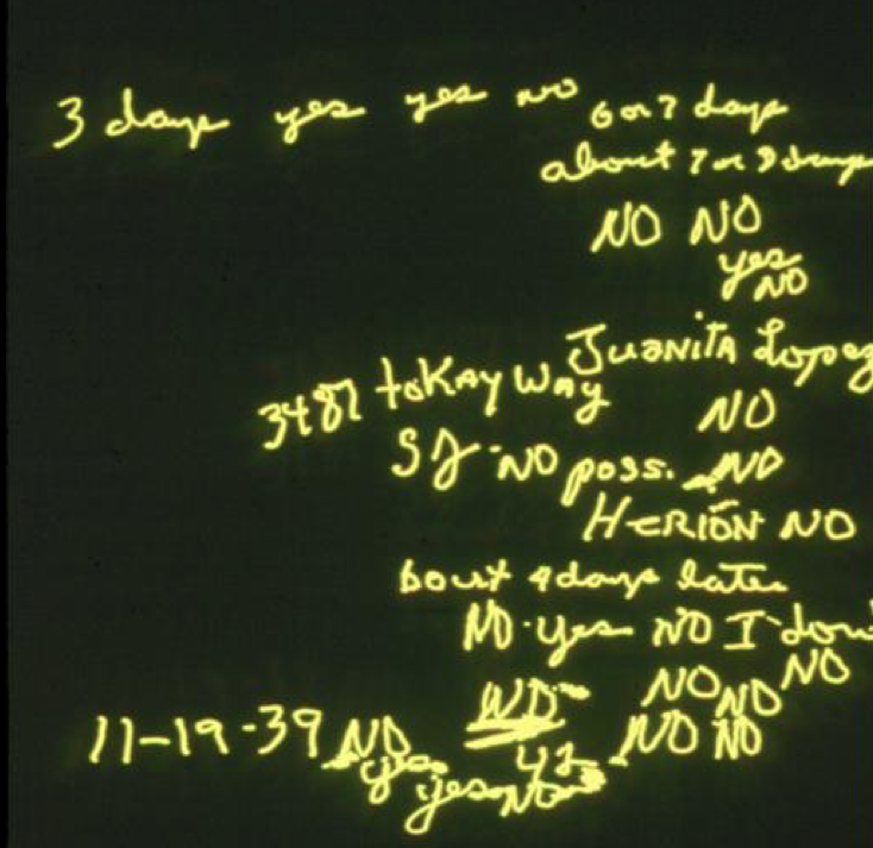 3 days yes yes no 6 or 7 days
about 7 or 8 days
NO NO
yes
NO
Juanita Lopez
3487 toKAY WAY
NO
SJ - NO poss. NO
HERION NO
bout 4 days later
NO - yes NO I don'
NO NO NO
11-19-39 NO NO NO NO
yes 42
yes NO